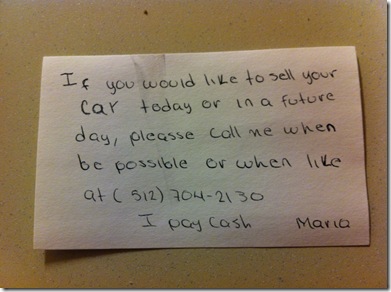 If you would like to sell your
car today or in a future
day, pleasse call me when
be possible or when like
at (512) 704-2130
I pay cash Maria